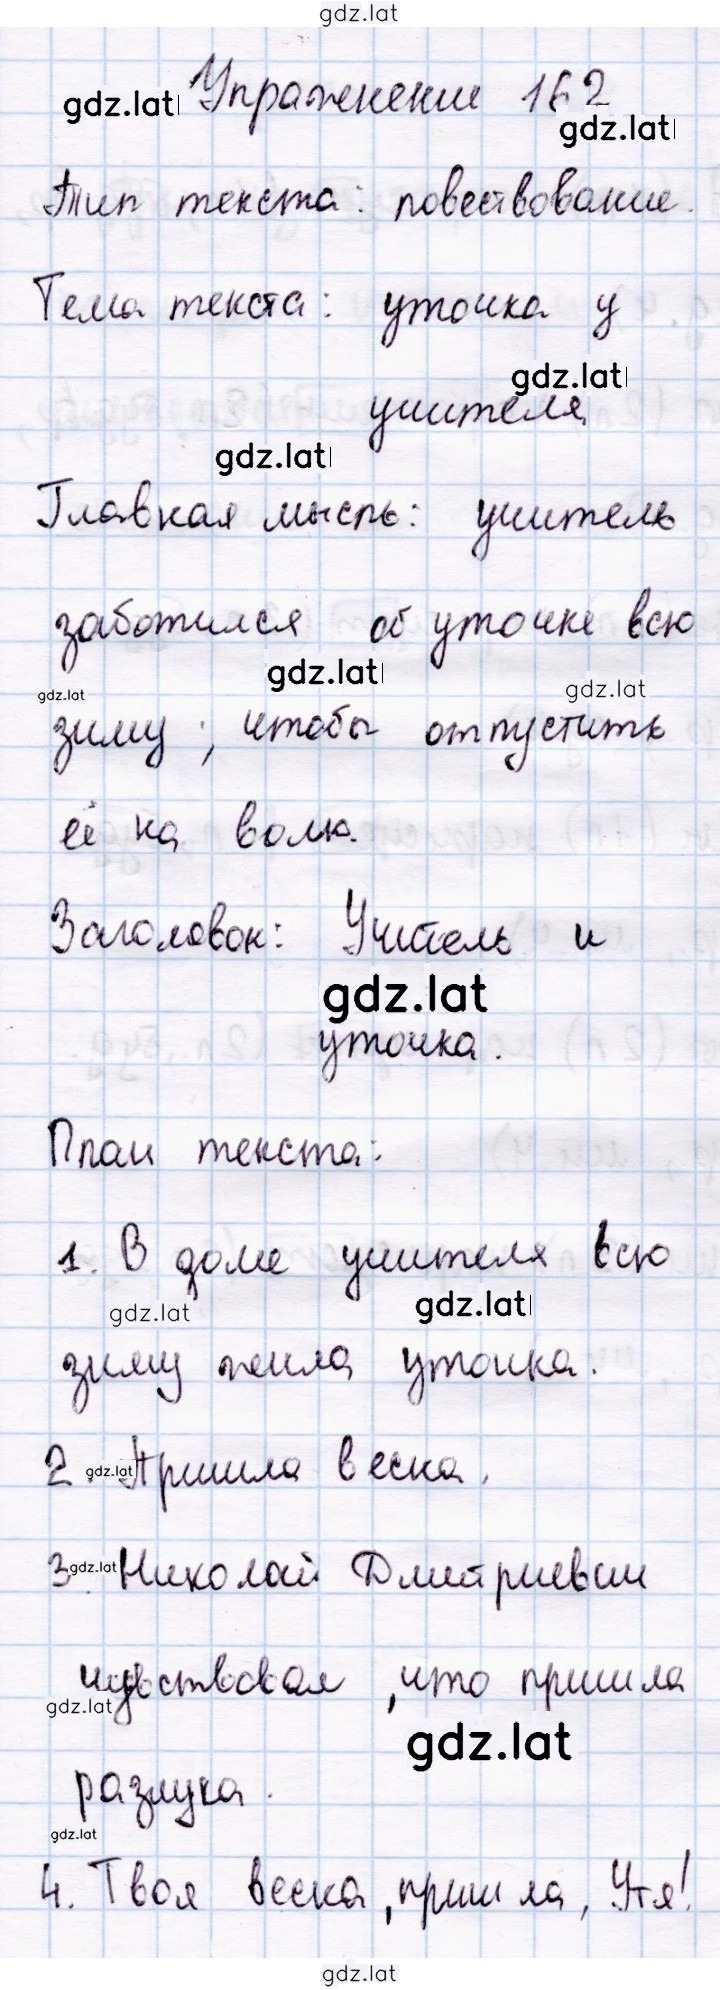 gdz.lat
Упражнение 162
gdz.lat
gdz.lat
Тип текста: повествование.
Тема текста: уточка у
gdz.lat
учителя
gdz.lat
Главная мысль: учитель
заботился об уточке всю
gdz.lat
gdz.lat
gdz.lat
зиму, чтобы отпустить
её на волю.
Заголовок: Учитель и
gdz.lat
уточка.
План текста:
1. В доме учителя всю
gdz.lat
gdz.lat
зиму жила уточка.
2. Пришла весна.
gdz.lat
3. Николай Дмитриевич
gdz.lat
чувствовал, что пришла
gdz.lat
gdz.lat
разлука.
gdz.lat
4. Твоя весна, пришла, Утя!
gdz.lat